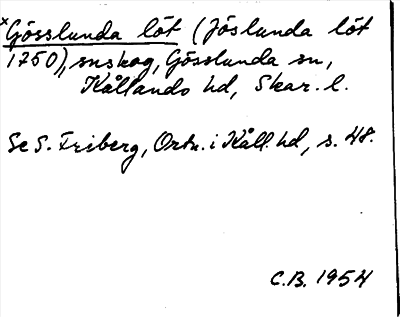 ×Gösslunda löt (Jöslunda löt
1750), snskog, Gösslunda sn,
Kållands hd, Skar. l.
Se S. Friberg, Ortn. i Kåll. hd, s. 48.
C.B. 1954